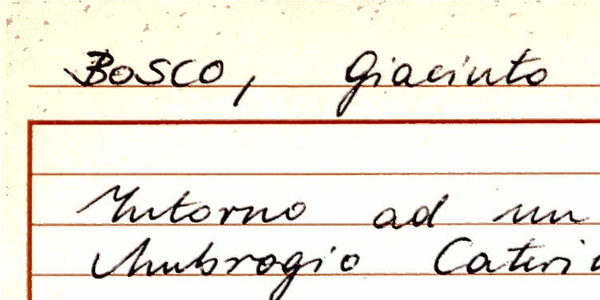 BOSCO, Giacinto
Intorno ad un
Ambrogio Cateri